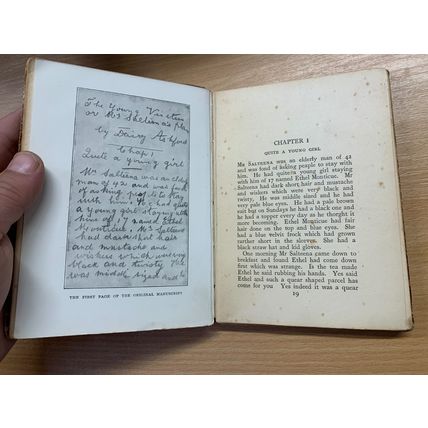 The Young Visiters
or Mr Salteenas plan
by Daisy Ashford
Chap. 1
Quite a young girl
Mr Salteena was an elderly
man of 42 and was fond
of asking peaple to stay
with him. He had quite
a young girl staying with
him of 17 named Ethel
Monticue. Mr Salteena
had dark short hair
and mustache and
wiskers which were very
black and twisty. He
was middle sized and he
THE FIRST PAGE OF THE ORIGINAL MANUSCRIPT
CHAPTER I
QUITE A YOUNG GIRL
MR SALTEENA was an elderly man of 42
and was fond of asking peaple to stay with
him. He had quite a young girl staying
with him of 17 named Ethel Monticue. Mr
Salteena had dark short hair and mustache
and wiskers which were very black and
twisty. He was middle sized and he had
very pale blue eyes. He had a pale brown
suit but on Sundays he had a black one and
he had a topper every day as he thorght it
more becoming. Ethel Monticue had fair
hair done on the top and blue eyes. She
had a blue velvit frock which had grown
rarther short in the sleeves. She had a
black straw hat and kid gloves.
One morning Mr Salteena came down to
brekfast and found Ethel had come down
first which was strange. Is the tea made
Ethel he said rubbing his hands. Yes said
Ethel and such a quear shaped parcel has
come for you Yes indeed it was a quear
19